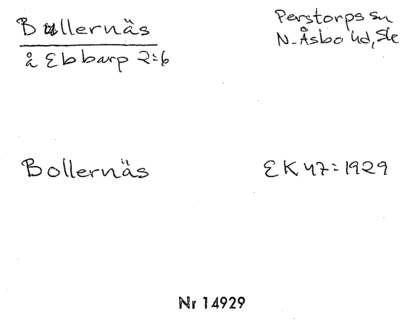 Bullernäs
å Ebbarp 2:6
Perstorps sn
N. Åsbo hd, Sk
Bollernäs
EK 47:1929
Nr 14929